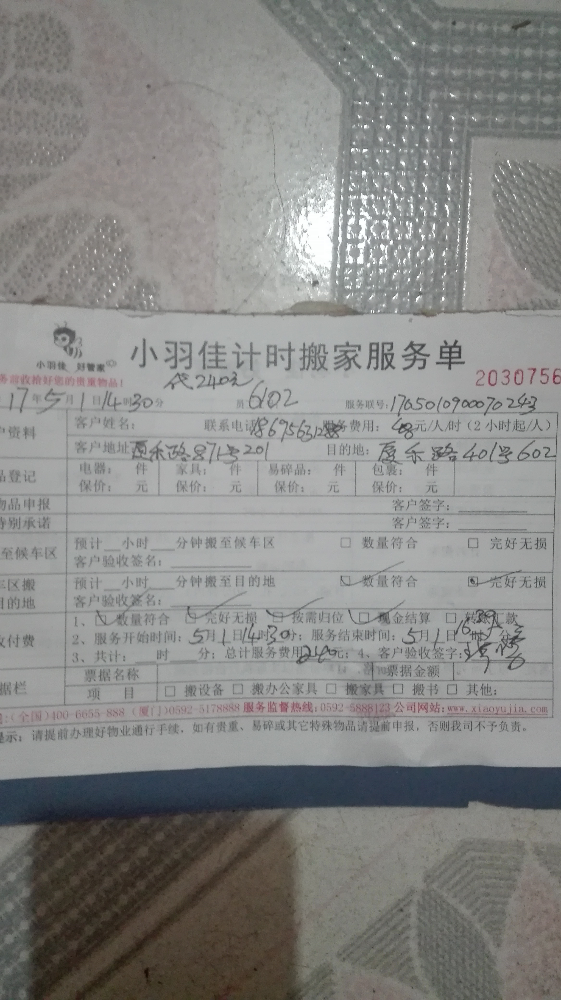 小羽佳 好管家
小羽佳计时搬家服务单
务请收拾好您的贵重物品!
代240元
2030756
17年5月1日14时30分
6602
服务联号:1765010900070243
户资料
客户姓名: 联系电话: 服务费用: 元/人/时(2小时起/人)
客户地址:厦禾路871号201 目的地:厦禾路401号602
品登记
电器: 件 家具: 件 易碎品: 件 包裹: 件
保价: 元 保价: 元 保价: 元 保价: 元
物品申报
客户签字:
特别承诺
客户签字:
至候车区
预计__小时__分钟搬至候车区 □ 数量符合 □ 完好无损
客户验收签名:
车区搬
目的地
预计__小时__分钟搬至目的地 □ 数量符合 □ 完好无损
客户验收签名:
收付费
1、□ 数量符合 □ 完好无损 □ 按需归位 □ 现金结算 □ 转账汇款
2、服务开始时间:5月1日14时30分;服务结束时间:5月1日
3、共计: 时 分;总计服务费用240元;4、客户验收签字:
据栏
票据名称 票据金额
项 目 □ 搬设备 □ 搬办公家具 □ 搬家具 □ 搬书 □ 其他:
:(全国)400-6655-888 (厦门)0592-5178888 服务监督热线:0592-5888123 公司网站:www.xiaoyujia.com
提示:请提前办理好物业通行手续。如有贵重、易碎或其它特殊物品请提前申报,否则我司不予负责。